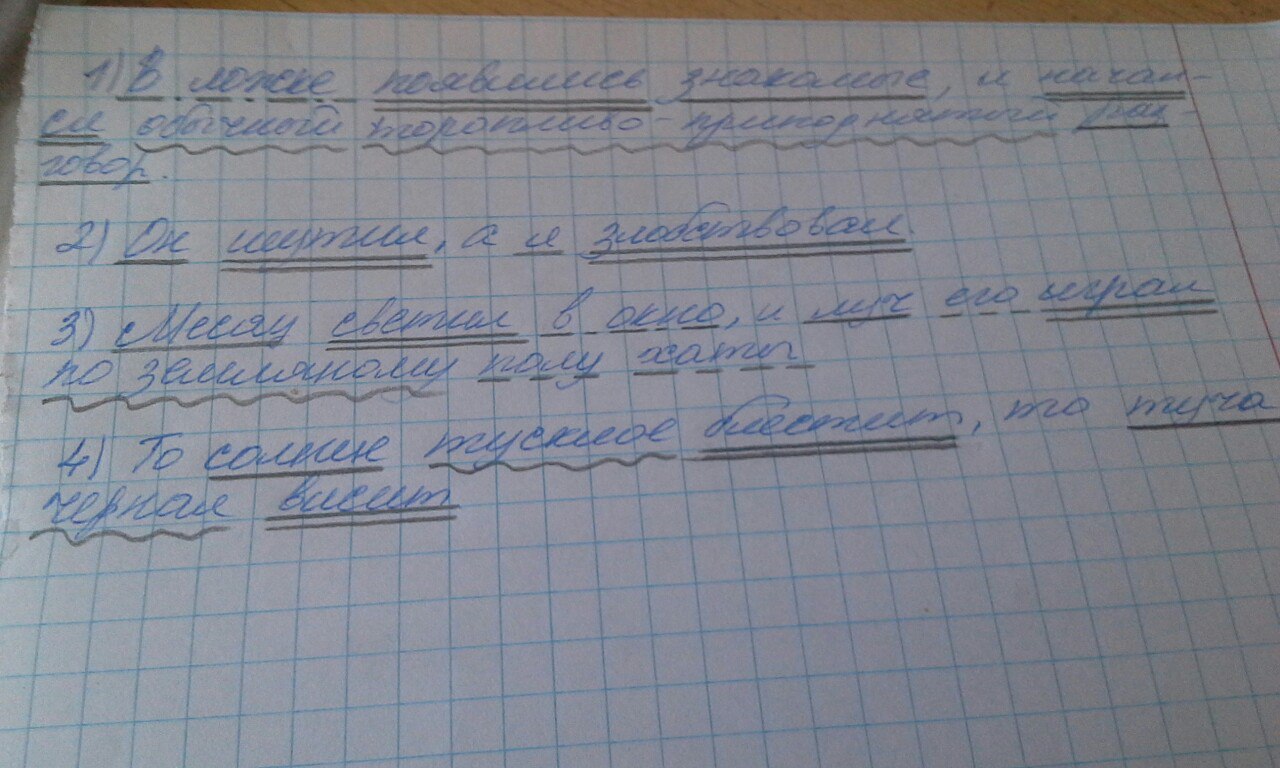 1) В ложе появились знакомые, и начал-
ся обычный торопливо-приподнятый раз-
говор.
2) Он шутил, а я злобствовал.
3) Месяц светил в окно, и луч его играл
по земляному полу хаты
4) То солнце тусклое блестит, то туча
черная висит